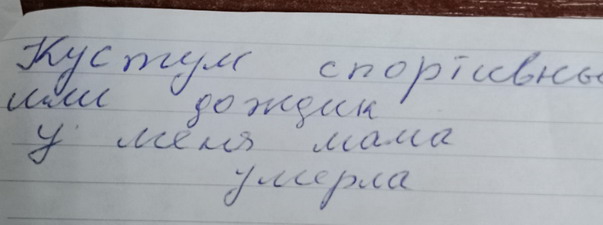 Кустум спортивны
или дождик
у меня мама
умерла